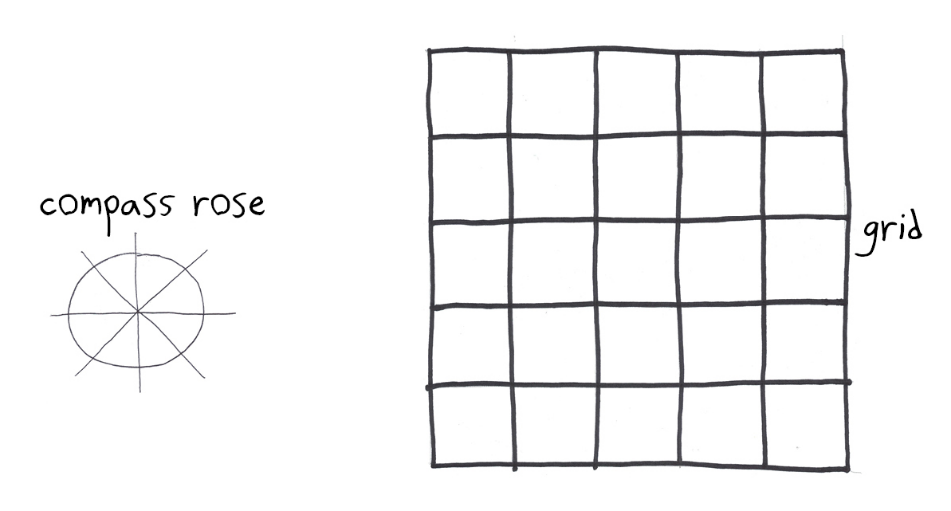 compass rose
grid